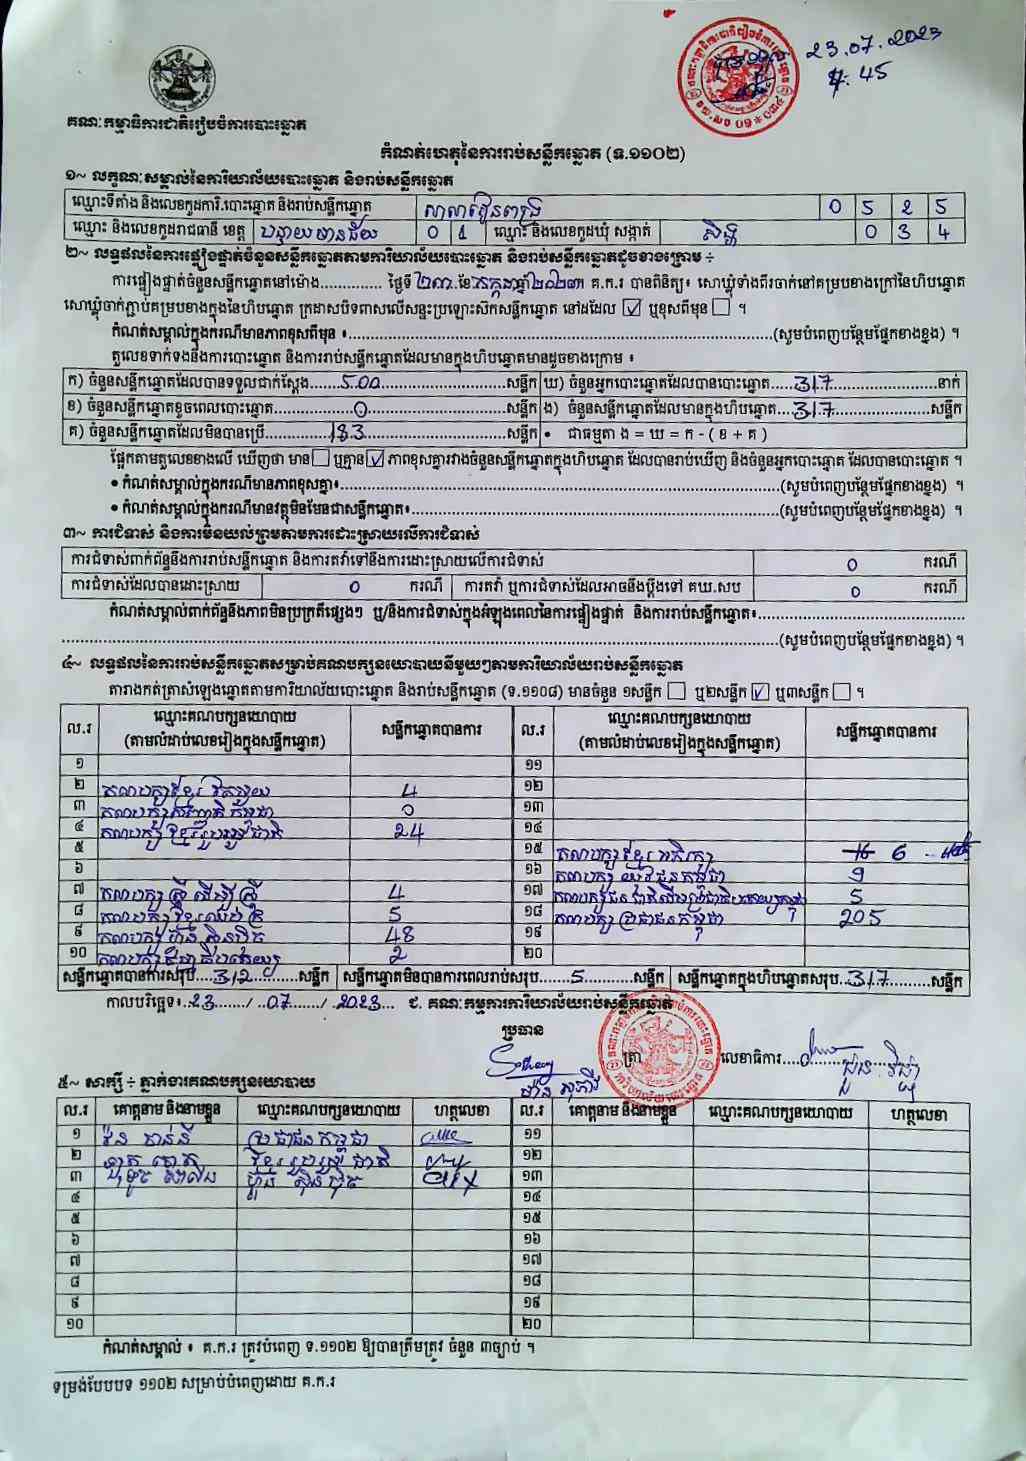 23.07.2023
4:45
គណៈកម្មាធិការជាតិរៀបចំការបោះឆ្នោត
កំណត់ហេតុនៃការរាប់សន្លឹកឆ្នោត (ទ.១១០២)
១~ លក្ខណៈសម្គាល់នៃការិយាល័យបោះឆ្នោត និងរាប់សន្លឹកឆ្នោត
ឈ្មោះទីតាំង និងលេខកូដការិ.បោះឆ្នោត និងរាប់សន្លឹកឆ្នោត 0 5 2 5
ឈ្មោះ និងលេខកូដរាជធានី ខេត្ត បន្ទាយមានជ័យ 0 1 ឈ្មោះ និងលេខកូដឃុំ សង្កាត់ 0 3 4
២~ លទ្ធផលនៃការផ្ទៀងផ្ទាត់ចំនួនសន្លឹកឆ្នោតតាមការិយាល័យបោះឆ្នោត និងរាប់សន្លឹកឆ្នោតដូចខាងក្រោម ÷
ការផ្ទៀងផ្ទាត់ចំនួនសន្លឹកឆ្នោតនៅម៉ោង.............. ថ្ងៃទី ២៣ .ខែ កក្កដា ឆ្នាំ ២០២៣ គ.ក.រ បានពិនិត្យ៖ សោឃ្លុំទាំងពីរចាក់នៅគម្របខាងក្រៅនៃហិបឆ្នោត
សោឃ្លុំចាក់ភ្ជាប់គម្របខាងក្នុងនៃហិបឆ្នោត ក្រដាសបិទពាសលើសន្ទះប្រឡោះស៊កសន្លឹកឆ្នោត នៅដដែល ☑ ឬខុសពីមុន ☐ ។
កំណត់សម្គាល់ក្នុងករណីមានភាពខុសពីមុន ៖..........(សូមបំពេញបន្ថែមផ្នែកខាងខ្នង) ។
តួលេខទាក់ទងនឹងការបោះឆ្នោត និងការរាប់សន្លឹកឆ្នោតដែលមានក្នុងហិបឆ្នោតមានដូចខាងក្រោម ៖
ក) ចំនួនសន្លឹកឆ្នោតដែលបានទទួលជាក់ស្តែង.......500.......សន្លឹក ឃ) ចំនួនអ្នកបោះឆ្នោតដែលបានបោះឆ្នោត....317.......នាក់
ខ) ចំនួនសន្លឹកឆ្នោតខូចពេលបោះឆ្នោត.......0.......សន្លឹក ង) ចំនួនសន្លឹកឆ្នោតដែលមានក្នុងហិបឆ្នោត...317.......សន្លឹក
គ) ចំនួនសន្លឹកឆ្នោតដែលមិនបានប្រើ.......183.......សន្លឹក • ជាធម្មតា ង = ឃ = ក - ( ខ + គ )
ផ្អែកតាមតួលេខខាងលើ ឃើញថា មាន ☐ ឬគ្មាន ☑ ភាពខុសគ្នារវាងចំនួនសន្លឹកឆ្នោតក្នុងហិបឆ្នោត ដែលបានរាប់ឃើញ និងចំនួនអ្នកបោះឆ្នោត ដែលបានបោះឆ្នោត ។
• កំណត់សម្គាល់ក្នុងករណីមានភាពខុសគ្នា៖..........(សូមបំពេញបន្ថែមផ្នែកខាងខ្នង) ។
• កំណត់សម្គាល់ក្នុងករណីមានវត្ថុមិនមែនជាសន្លឹកឆ្នោត៖..........(សូមបំពេញបន្ថែមផ្នែកខាងខ្នង) ។
៣~ ការជំទាស់ និងការមិនយល់ព្រមតាមការដោះស្រាយលើការជំទាស់
ការជំទាស់ពាក់ព័ន្ធនឹងការរាប់សន្លឹកឆ្នោត និងការតវ៉ាទៅនឹងការដោះស្រាយលើការជំទាស់ 0 ករណី
ការជំទាស់ដែលបានដោះស្រាយ 0 ករណី ការតវ៉ា ឬការជំទាស់ដែលអាចនឹងប្តឹងទៅ គឃ.សប 0 ករណី
កំណត់សម្គាល់ពាក់ព័ន្ធនឹងភាពមិនប្រក្រតីផ្សេងៗ ឬ/និងការជំទាស់ក្នុងអំឡុងពេលនៃការផ្ទៀងផ្ទាត់ និងការរាប់សន្លឹកឆ្នោត៖..........
..........(សូមបំពេញបន្ថែមផ្នែកខាងខ្នង) ។
៤~ លទ្ធផលនៃការរាប់សន្លឹកឆ្នោតសម្រាប់គណបក្សនយោបាយនីមួយៗតាមការិយាល័យរាប់សន្លឹកឆ្នោត
តារាងកត់ត្រាសំឡេងឆ្នោតតាមការិយាល័យបោះឆ្នោត និងរាប់សន្លឹកឆ្នោត (ទ.១១០៨) មានចំនួន ១សន្លឹក ☐ ឬ២សន្លឹក ☑ ឬ៣សន្លឹក ☐ ។
ល.រ ឈ្មោះគណបក្សនយោបាយ (តាមលំដាប់លេខរៀងក្នុងសន្លឹកឆ្នោត) សន្លឹកឆ្នោតបានការ ល.រ ឈ្មោះគណបក្សនយោបាយ (តាមលំដាប់លេខរៀងក្នុងសន្លឹកឆ្នោត) សន្លឹកឆ្នោតបានការ
១ ១១
២ គណបក្សខ្មែរ 4 ១២
៣ គណបក្ស កម្ពុជា 0 ១៣
៤ គណបក្ស ខ្មែររួបរួមជាតិ 24 ១៤
៥ ១៥ គណបក្សខ្មែរ អភិរក្ស 6
៦ ១៦ គណបក្ស យុវជនកម្ពុជា 9
៧ គណបក្ស ស្ត្រី ដើម្បី ស្ត្រី 4 ១៧ 5
៨ គណបក្ស ខ្មែរ 5 ១៨ គណបក្ស ប្រជាជនកម្ពុជា 205
៩ គណបក្ស ហ្វ៊ុនស៊ិនប៉ិច 48 ១៩
១០ គណបក្ស 2 ២០
សន្លឹកឆ្នោតបានការសរុប....312.......សន្លឹក សន្លឹកឆ្នោតមិនបានការពេលរាប់សរុប.....5.......សន្លឹក សន្លឹកឆ្នោតក្នុងហិបឆ្នោតសរុប..317.......សន្លឹក
កាលបរិច្ឆេទ៖.23....../..07....../..2023... ជ. គណៈកម្មការការិយាល័យរាប់សន្លឹកឆ្នោត
ប្រធាន
ត្រា លេខាធិការ
៥~ សាក្សី ÷ ភ្នាក់ងារគណបក្សនយោបាយ
ល.រ គោត្តនាម និងនាមខ្លួន ឈ្មោះគណបក្សនយោបាយ ហត្ថលេខា ល.រ គោត្តនាម និងនាមខ្លួន ឈ្មោះគណបក្សនយោបាយ ហត្ថលេខា
១ ប្រជាជនកម្ពុជា ១១
២ ខ្មែររួបរួមជាតិ ១២
៣ ហ្វ៊ុនស៊ិនប៉ិច ១៣
៤ ១៤
៥ ១៥
៦ ១៦
៧ ១៧
៨ ១៨
៩ ១៩
១០ ២០
កំណត់សម្គាល់ ៖ គ.ក.រ ត្រូវបំពេញ ទ.១១០២ ឱ្យបានត្រឹមត្រូវ ចំនួន ៣ច្បាប់ ។
ទម្រង់បែបបទ ១១០២ សម្រាប់បំពេញដោយ គ.ក.រ